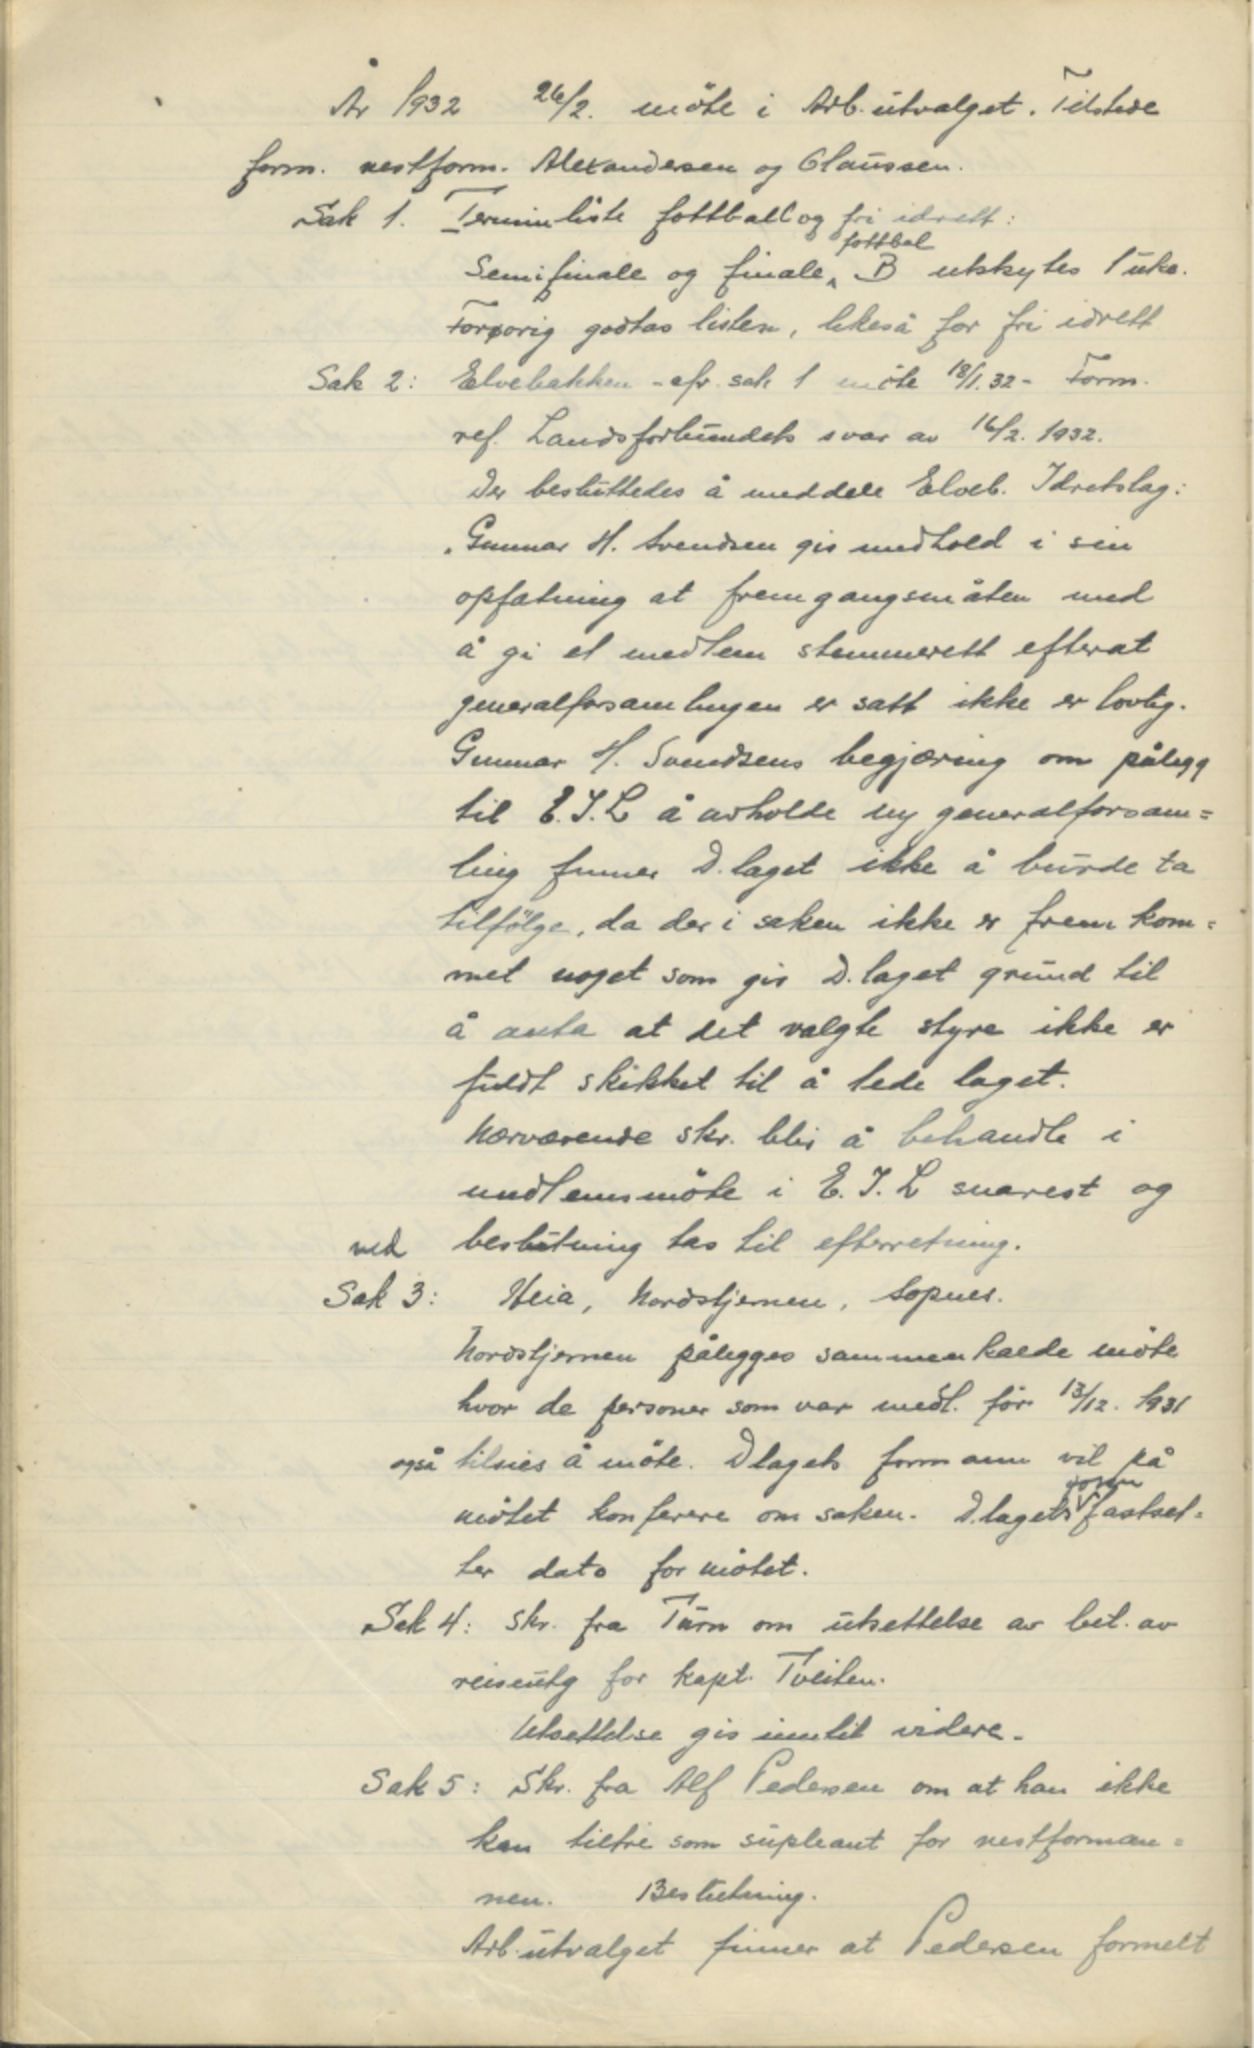 År 1932 26/2. möte i Arb.utvalget. Tilstede
form. nestform. Alexandersen og Claussen.
Sak 1. Terminliste fottball og fri idrett:
Semifinale og finale fottbal B utskytes 1 uke.
Forøvrig godtas listen, likeså for fri idrett
Sak 2: Elvebakken - cfr. sak 1 möte 18/1.32 - Form.
ref. Landsforbundets svar av 16/2. 1932.
Der besluttedes å meddele Elveb. Idretslag:
"Gunnar H. Svendsen gis medhold i sin
opfatning at fremgangsmåten med
å gi et medlem stemmerett efterat
generalforsamlingen er satt ikke er lovlig.
Gunnar H. Svendsens begjæring om pålegg
til E.I.L å avholde ny generalforsam=
ling finner D.laget ikke å burde ta
tilfölge, da der i saken ikke er frem kom=
met noget som gir D.laget grund til
å anta at det valgte styre ikke er
fuldt skikket til å lede laget.
Nærværende skr. blir å behandle i
medlemsmöte i E.I.L snarest og
ved beslutning tas til efterretning.
Sak 3: Heia, Nordstjernen, Sopnes.
Nordstjernen pålegges sammenkalde möte
hvor de personer som var medl. før 13/12. 1931
også tilsies å möte. Dlagets formann vil på
mötet konferere om saken. D.lagets form fastset=
ter dato for mötet.
Sak 4: Skr. fra Turn om utsettelse av bet. av
reiseutg for kapt. Tveiten.
Utsettelse gis inntil videre.
Sak 5: Skr. fra Alf Pedersen om at han ikke
kan tiltre som supleant for nestforman=
nen. Beslutning.
Arb.utvalget finner at Pedersen formelt